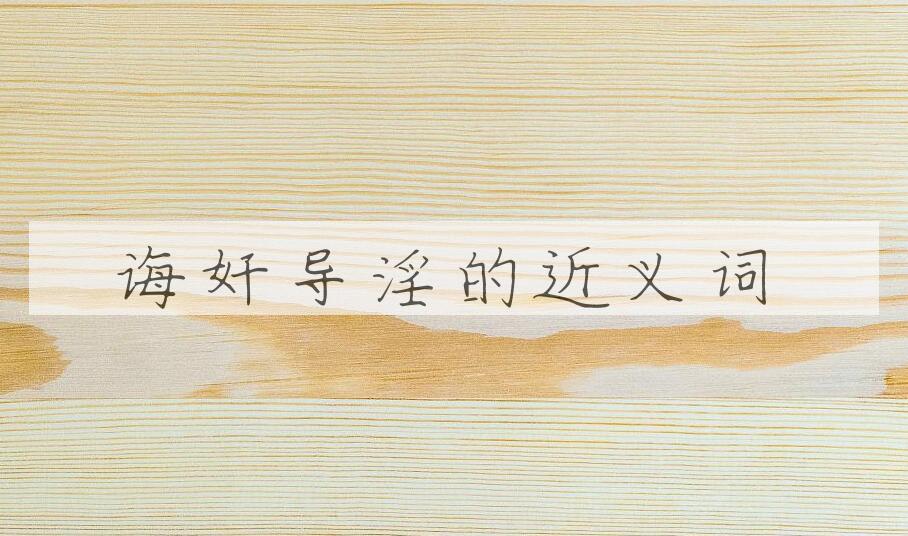 诲奸导淫的近义词